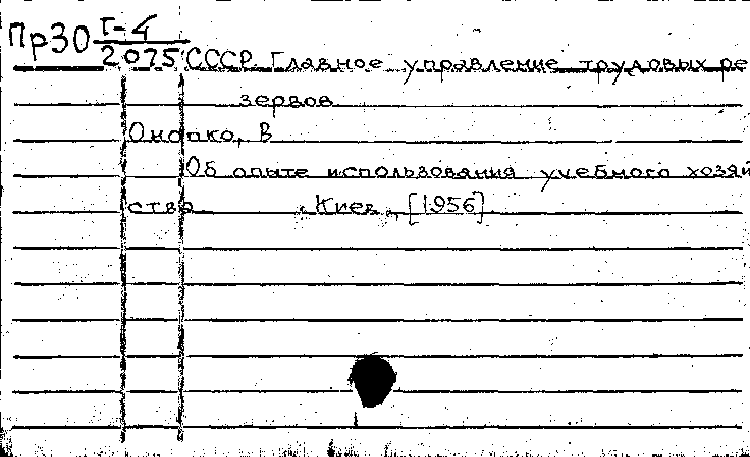 Пр30 Г-4
2075 СССР. Главное управление трудовых ре
зервов
Онопко, В
Об опыте использования учебного хозяй
ства Киев, [1956]